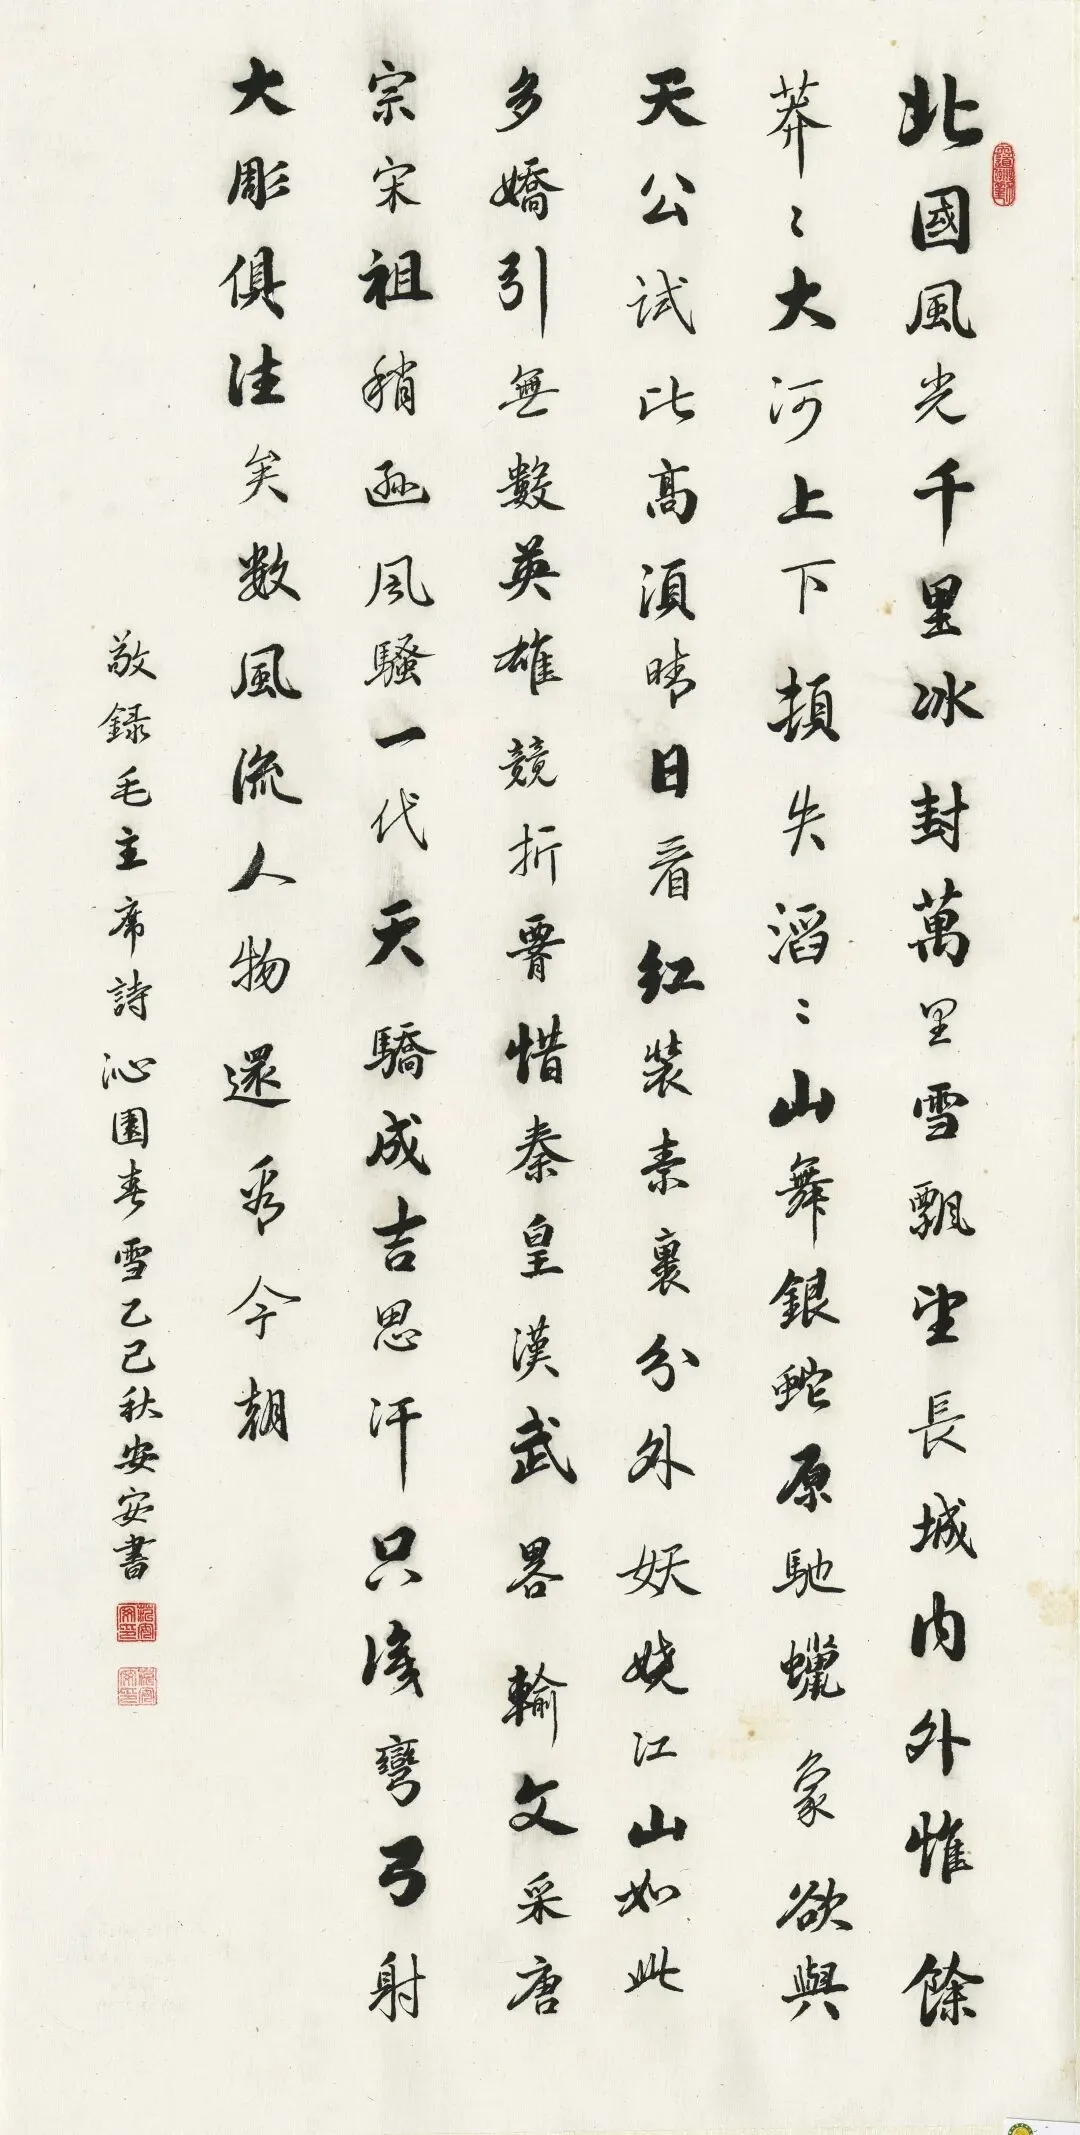 北國風光千里冰封萬里雪飄望長城内外惟餘
莽〻大河上下頓失滔〻山舞銀蛇原馳蠟象欲與
天公試比高須晴日看红裝素裹分外妖娆江山如此
多嬌引無數英雄競折腰惜秦皇漢武畧輸文采唐
宗宋祖稍遜风騷一代天驕成吉思汗只識彎弓射
大彫俱往矣数風流人物還看今朝
敬録毛主席詩沁園春雪乙巳秋安安書